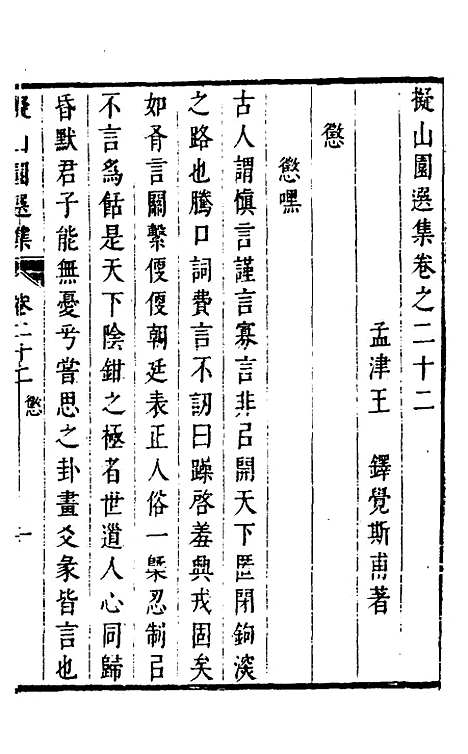 擬山園選集卷之二十二
孟津王　鐸覺斯甫著
懲
懲嘿
古人謂慎言謹言寡言非㠯開天下匿閉鉤深
之路也騰口詞費言不訒曰躁啓羞興戎固矣
如胥言關繫偃偃朝廷表正人俗一槩忍制㠯
不言爲餂是天下陰鉗之極者世道人心同歸
昏默君子能無憂乎嘗思之卦畫爻彖皆言也
擬山園選集
卷二十二
懲
一